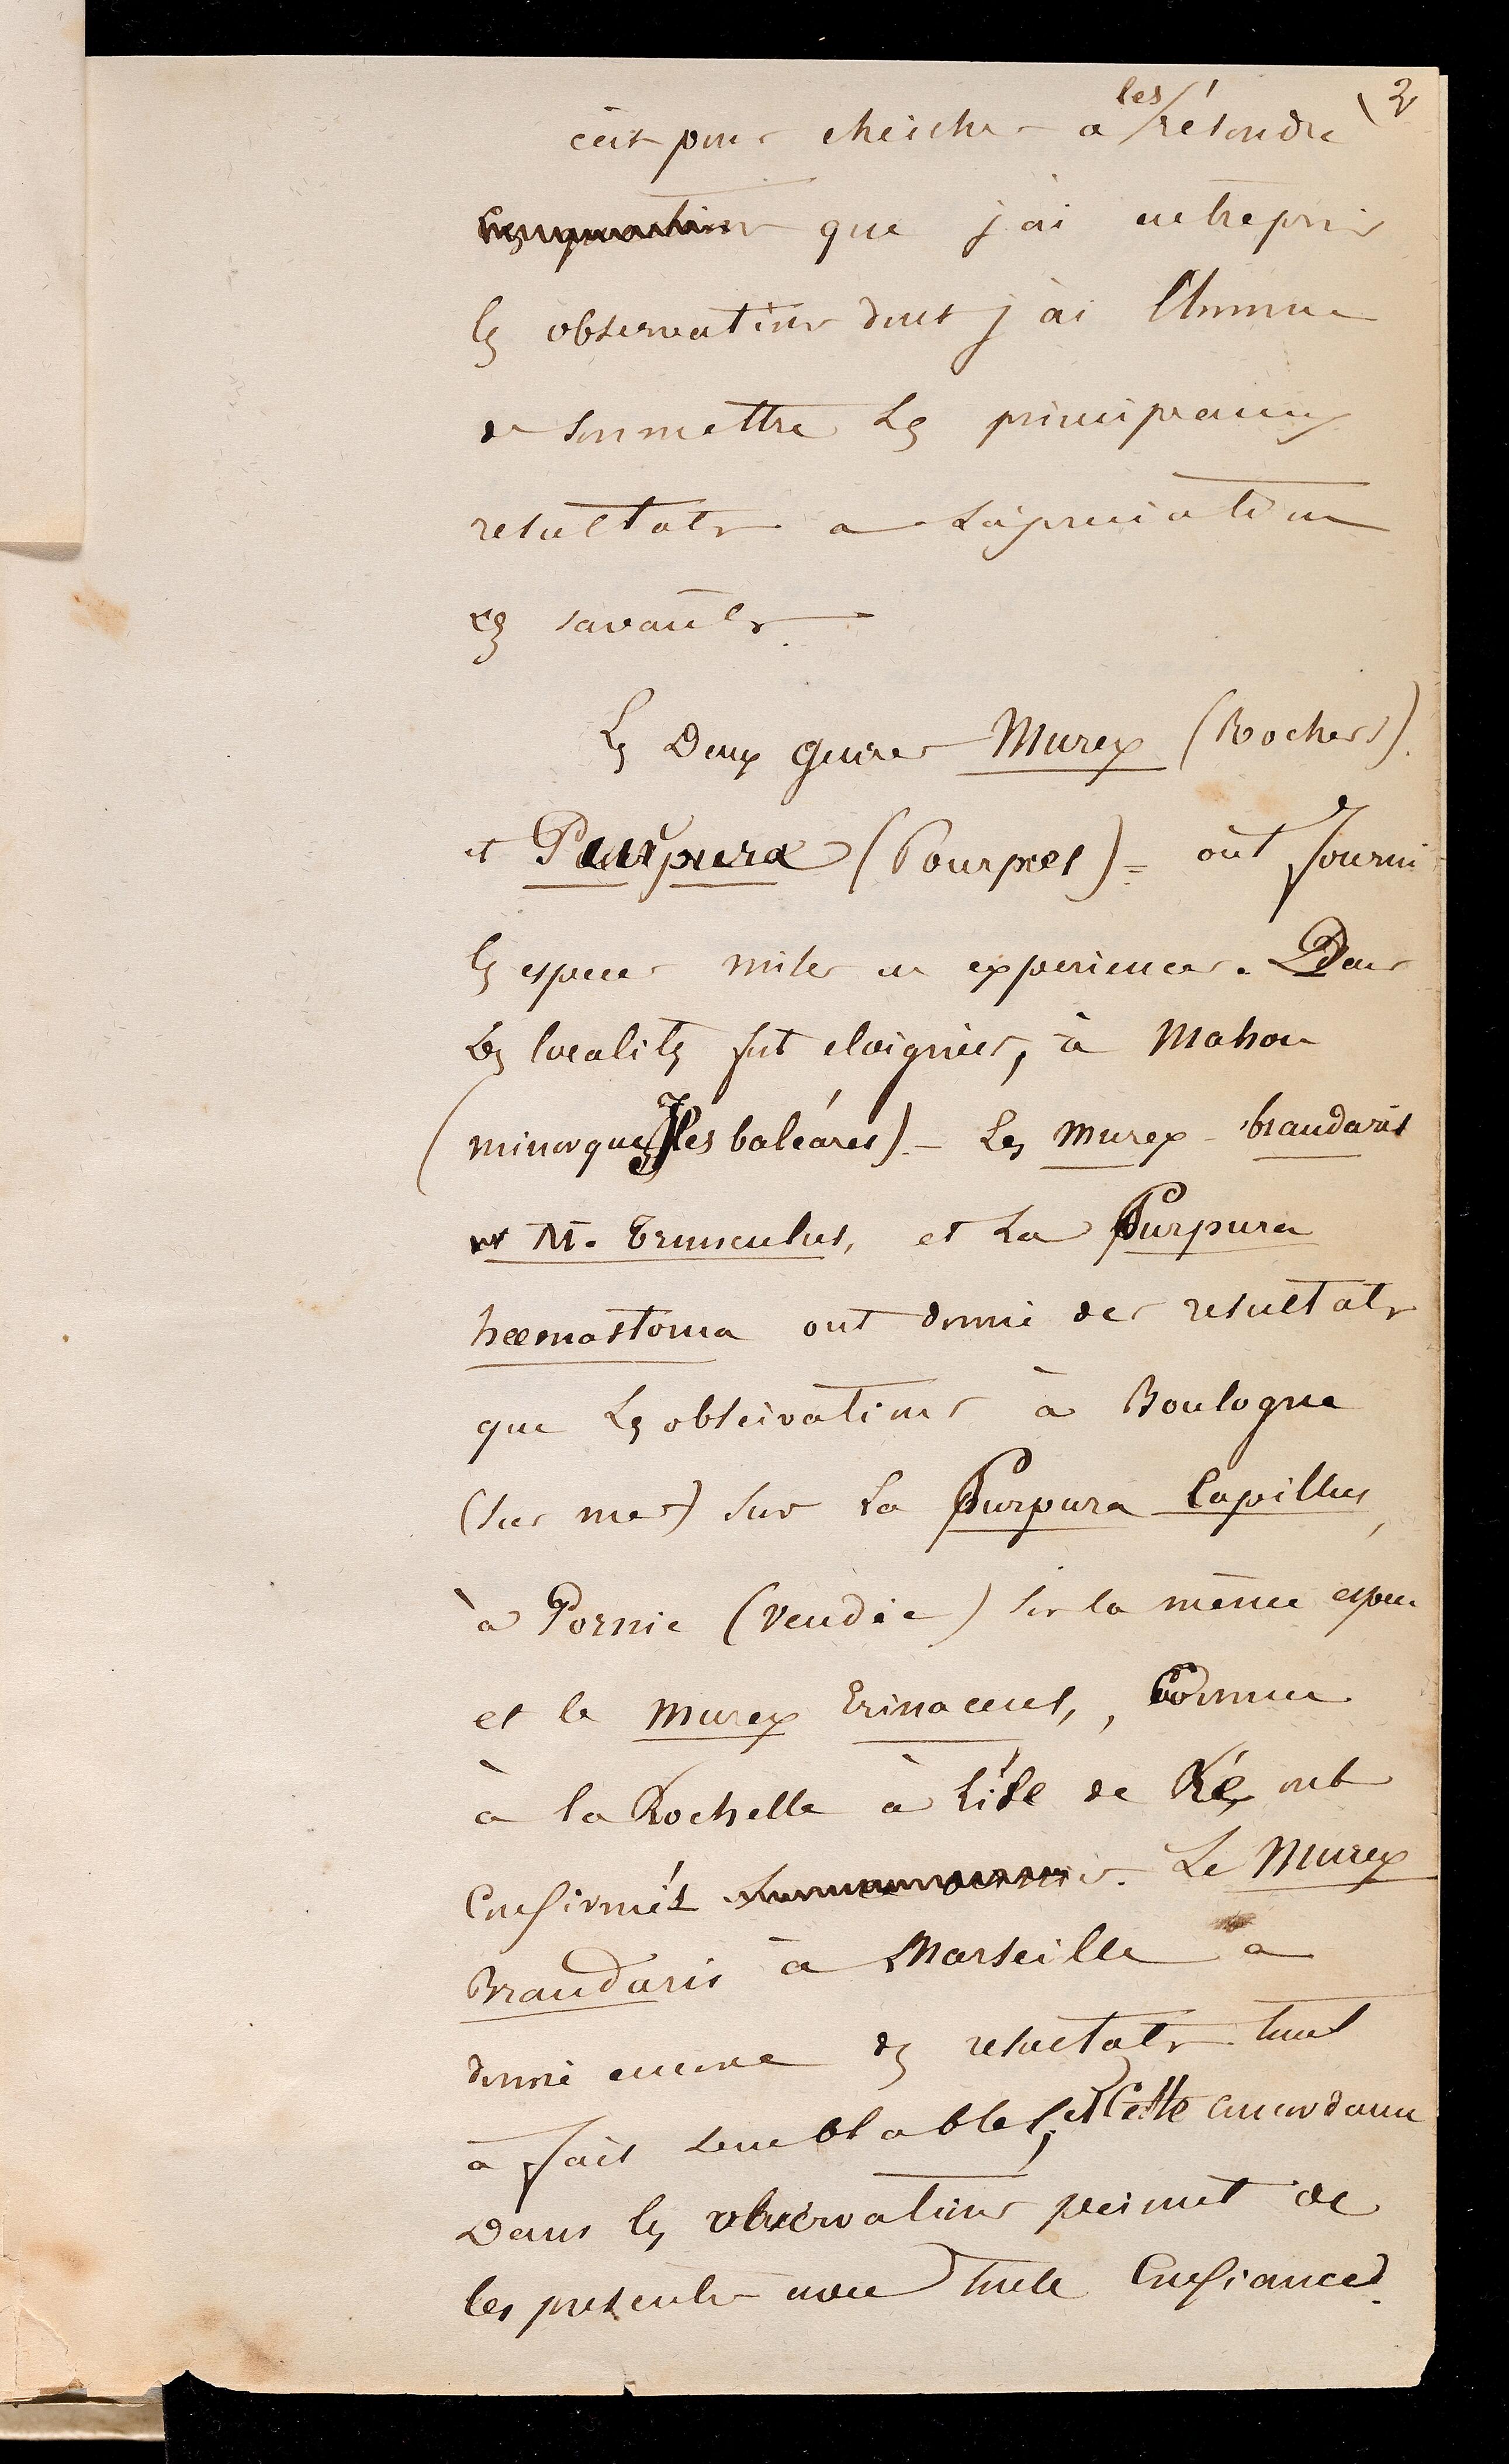 2
les
c'est pour chercher a résoudre
que j'ai entrepris
les observations dont j'ai l'honneur
de soumettre les principaux
resultats a l'apreciation
des savants.
Les deux genres Murex (Rochers).
et Purpura (Pourpres) = ont fourni
les especes mises en experiences. Dans
les localités fort eloignées, à Mahon
(minorque Iles baléares) – Les Murex brandaris
et M. Trunculus, et La Purpura
hœmastoma ont donné des resultats
que les observations à Boulogne
(sur mer) sur La Purpura Lapillus,
à Pornic (Vendée) sur la même espece
et le Murex Erinaceus, comme
à la Rochelle à L'ile de Ré, ont
Confirmés. Le Murex
Brandaris à Marseille a
donné encore des resultats tout
à fait semblables; et Cette concordance
Dans les observations permet de
les presenter avec toute Confiance.